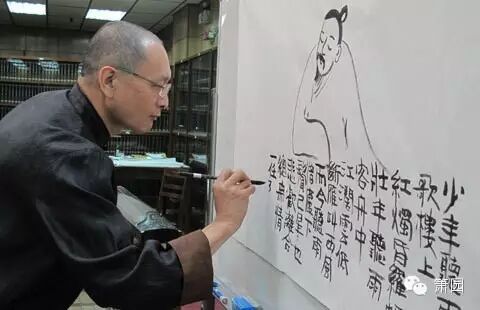 少年聽雨
歌樓上
紅燭昏羅
壯年聽雨
客舟中
江闊雲低
斷雁叫西風
而今聽雨
僧廬下
鬢已星星也
悲歡離合
總無情
一任
箫园